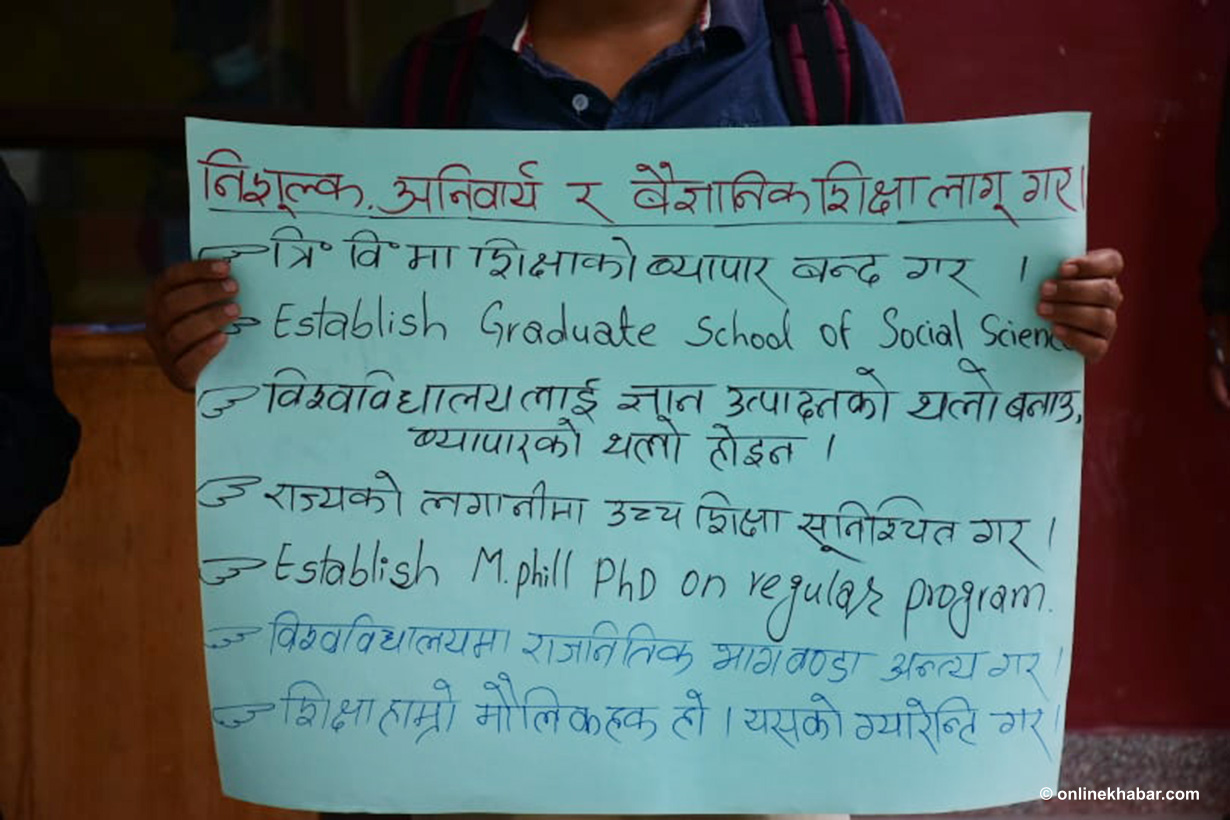 निशूल्क, अनिवार्य र बैज्ञानिक शिक्षा लागू गर।
त्रि॰ वि॰ मा शिक्षाको ब्यापार बन्द गर ।
Establish Graduate School of Social Scienc
विश्वविद्यालयलाई ज्ञान उत्पादनको थलो बनाउ,
ब्यापारको थलो होइन ।
राज्यको लगानीमा उच्च शिक्षा सूनिश्चित गर ।
Establish M.phill PhD on regular program.
विश्वविद्यालयमा राजनितिक भागवण्डा अन्त्य गर ।
शिक्षा हाम्रो मौलिक हक हो । यसको ग्यारेन्ति गर ।
© onlinekhabar.com